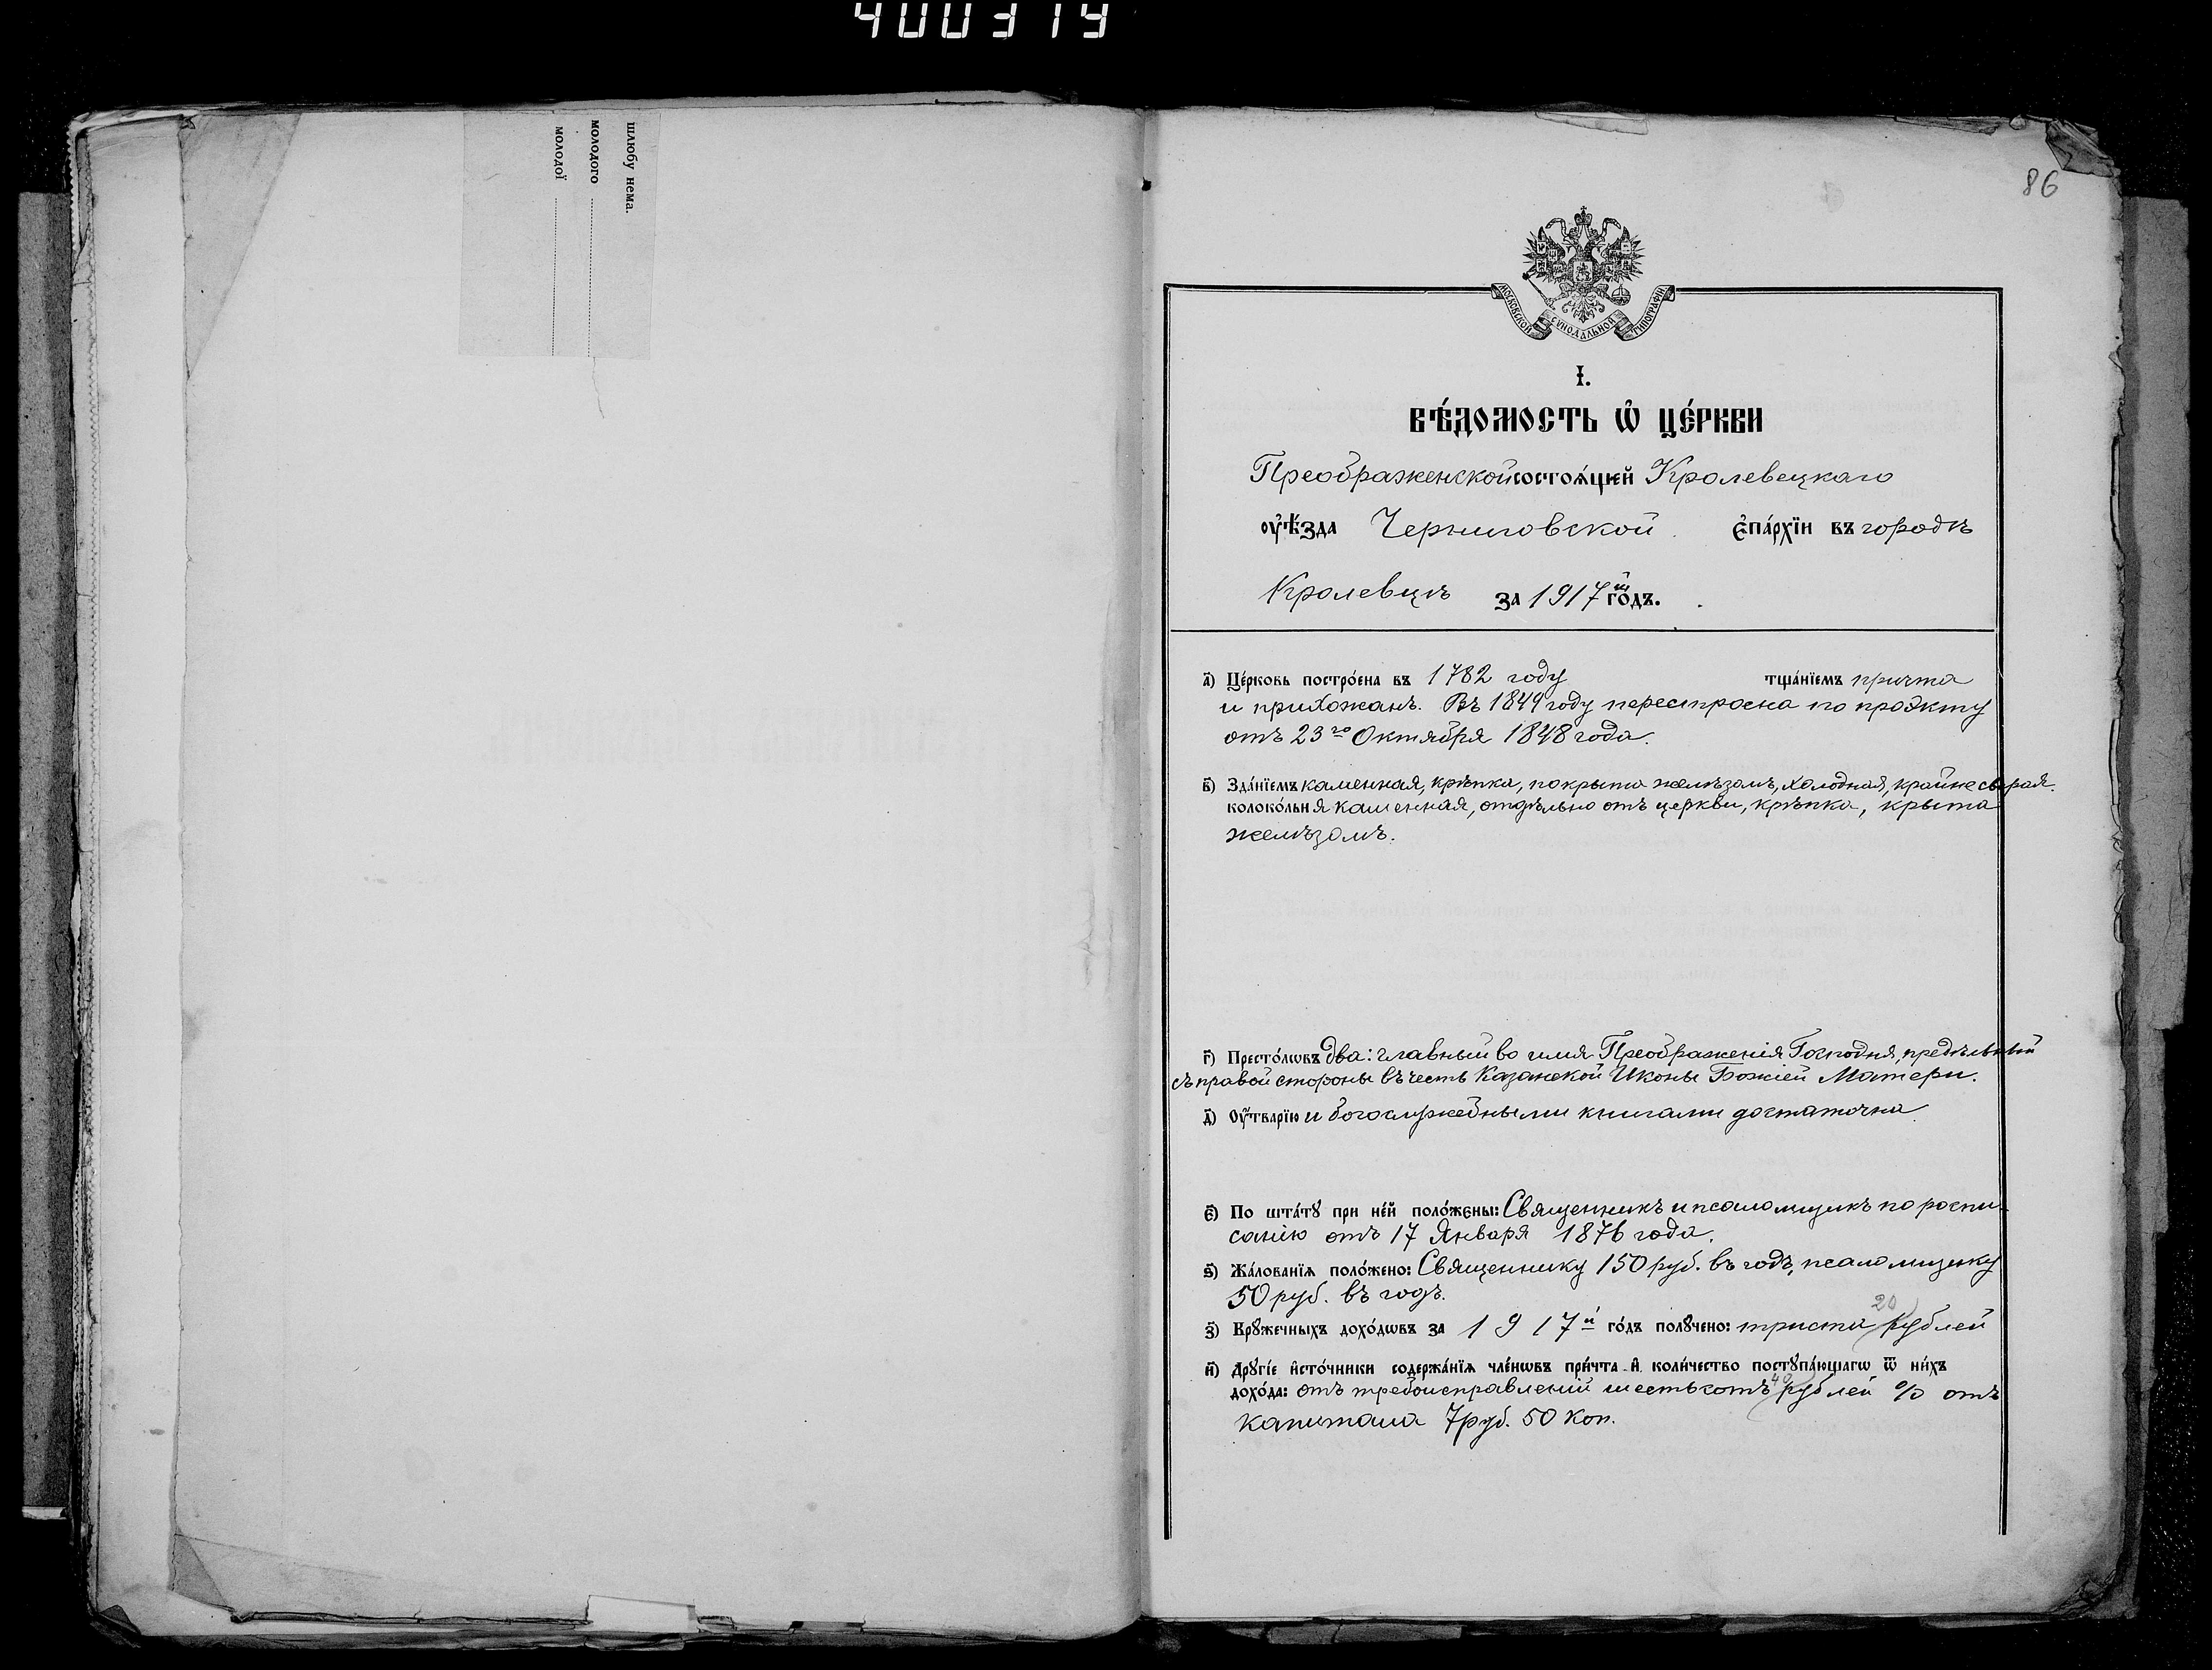 400319
шлюбу нема.
молодого
молодої
86
МОСКОВСКОЙ СѴНОДАЛЬНОЙ ТИПОГРАФІИ
І.
ВѢ́ДОМОСТЬ Ѡ҆ ЦЕ́РКВИ
Преображенской состоѧ́щей Кролевецкаго
ᲂу҆ѣ́зда Черниговской є҆па́рхїи въ городѣ
Кролевцѣ за 1917й го́дъ.
а҃) Це́рковь постро́ена въ 1782 году тща́нїемъ причта
и прихожанъ. Въ 1849 году перестроена по проэкту
отъ 23го Октября 1848 года.
в҃) Зда́нїемъ каменная, крѣпка, покрыта желѣзомъ, холодная, крайне сырая.
колоко́льня каменная, отдѣльно отъ церкви, крѣпка, крыта
желѣзомъ.
г҃) Престо́лѡвъ два: главный во имя Преображенія Господня, придѣльный
съ правой стороны въ честь Казанской Иконы Божіей Матери.
д҃) Оу҆́тварїю и богослужебными книгами достаточна.
є҃) По шта́тꙋ при не́й поло́жены: Священникъ и псаломщикъ по роспи-
санію отъ 17 Января 1876 года.
ѕ҃) Жа́лованїѧ поло́жено: Священнику 150 руб. въ годъ, псаломщику
50 руб. въ годъ.
з҃) Крꙋжечныхъ дохо́дѡвъ за 1917й го́дъ полꙋчено: триста 20 рублей
и҃) Дрꙋгі́е и҆сто́чники содержа́нїѧ чле́нѡвъ при́чта и҆ коли́чество постꙋпа́ющагѡ ѿ ни́хъ
дохо́да: отъ требоисправленій шестьсотъ 40 рублей % отъ
капитала 7 руб. 50 коп.